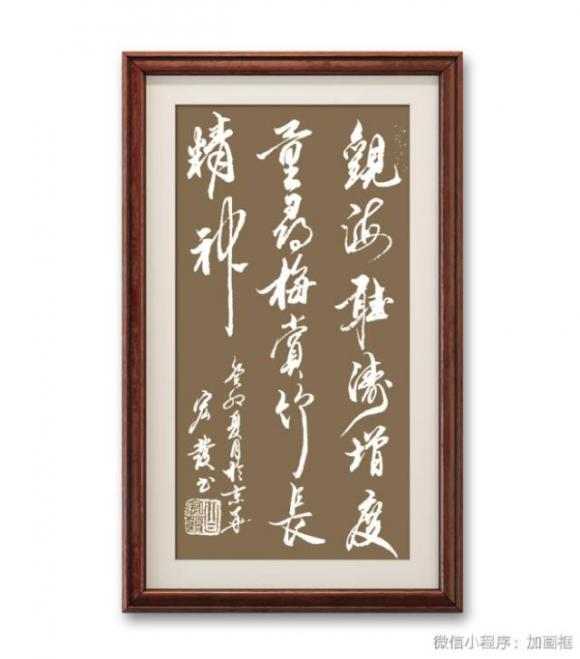 觀海聽濤增度
量尋梅賞竹長
精神
癸卯夏月於京華
宏發书
微信小程序：加画框